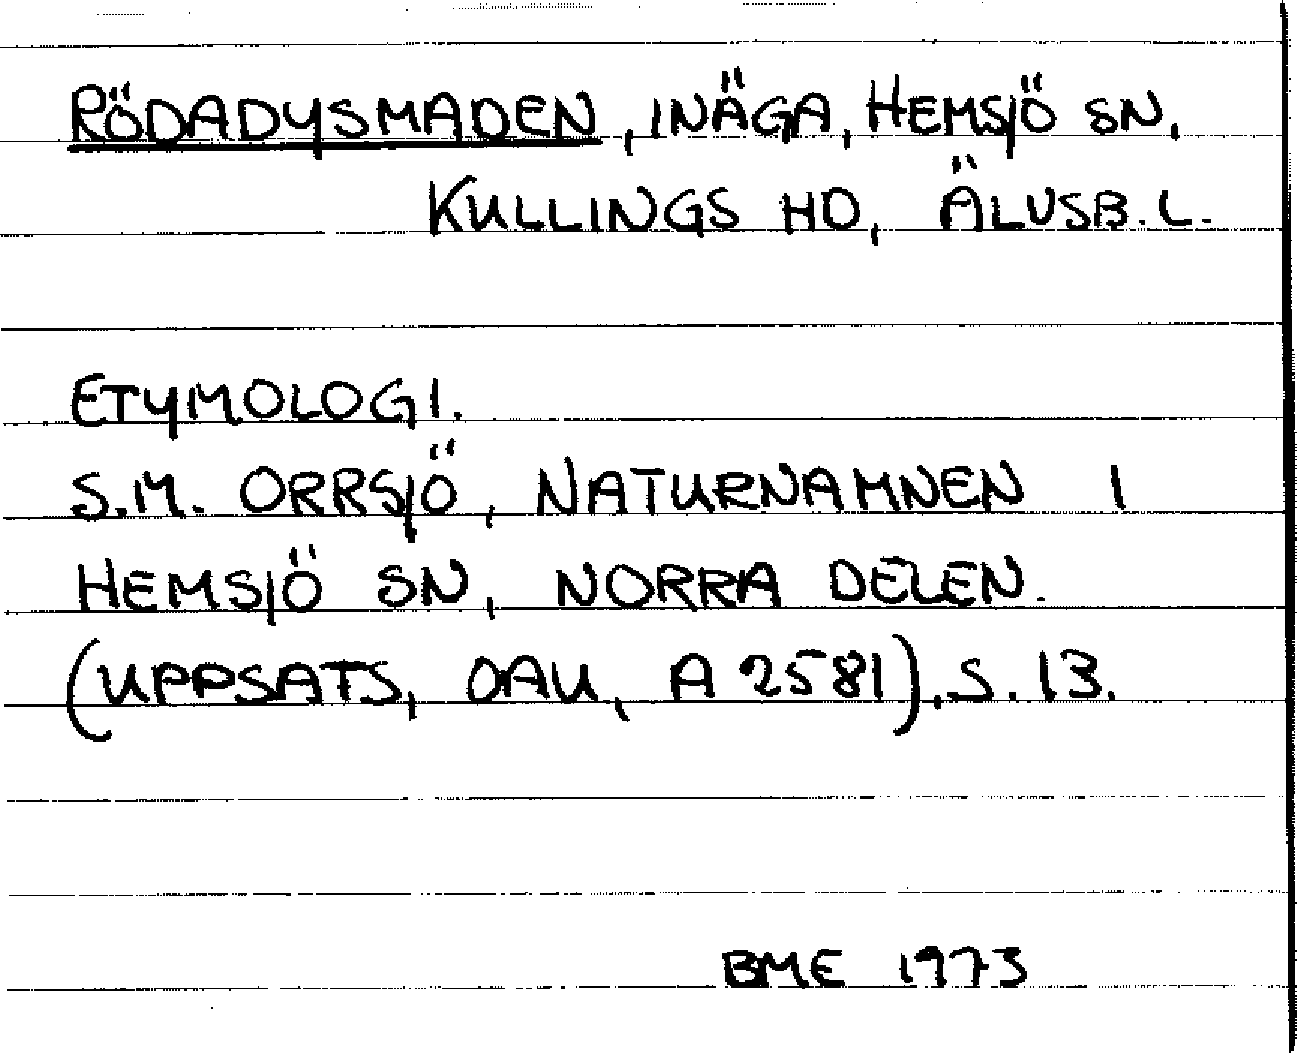 RÖDADYSMADEN, INÄGA, HEMSJÖ SN,
KULLINGS HD, ÄLVSB. L.
ETYMOLOGI.
S.M. ORRSJÖ, NATURNAMNEN I
HEMSJÖ SN, NORRA DELEN.
(UPPSATS, OAU, A 2581), S. 13.
BME 1973